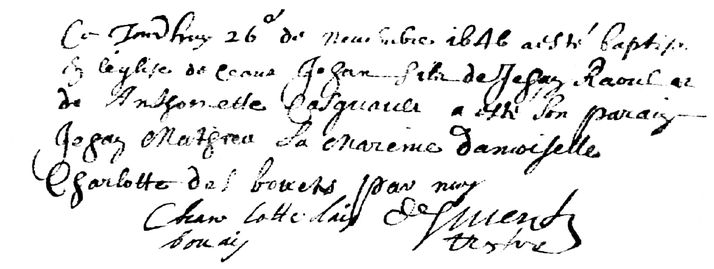 Ce Jourdhuy 26e de Novembre 1646 a esté baptisé
En léglise de ceaux Jehan filz de Jehan Raoul et
de Anthoinette Pasquault a esté son parain
Jehan Mathieu La Mareine damoiselle
Charlotte des bouets par moy
Charlotte